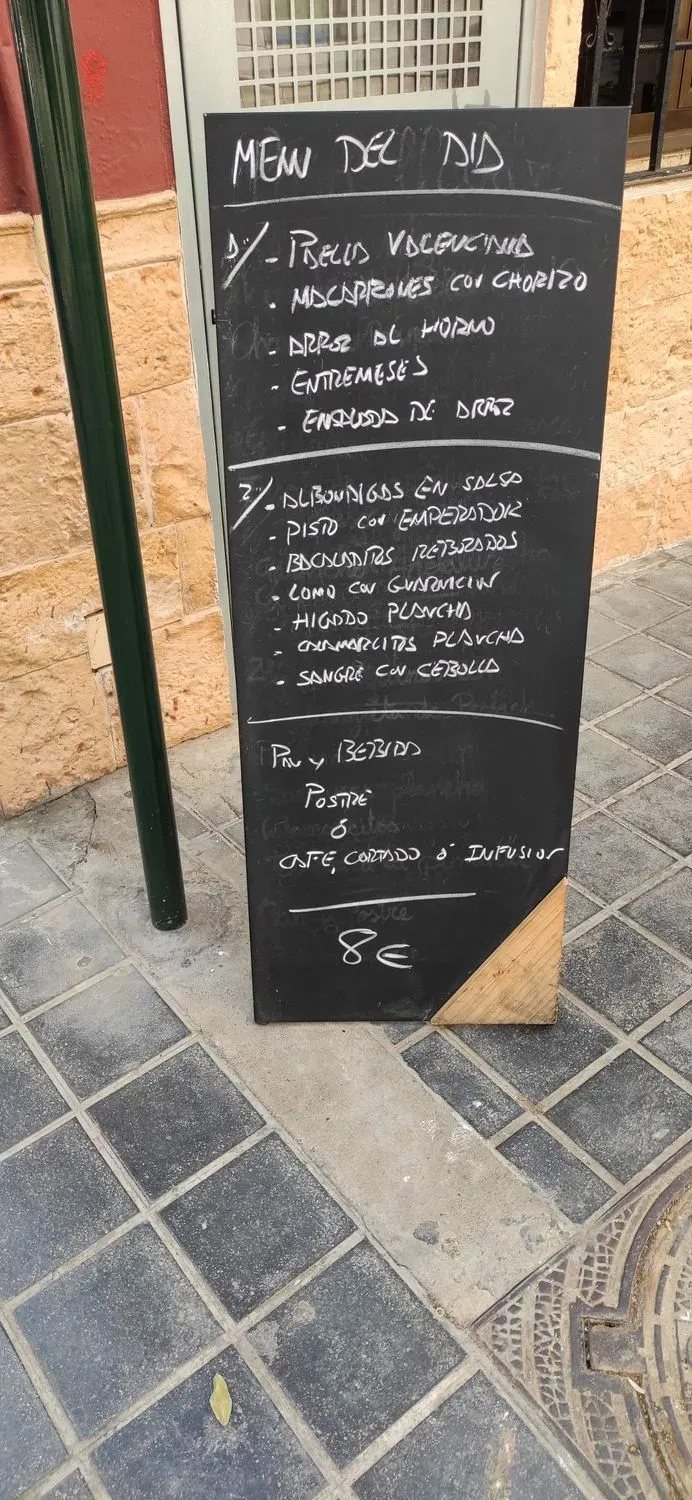 MENU DEL DIA
1º/ - PAELLA VALENCIANA
- MACARRONES CON CHORIZO
- ARROZ AL HORNO
- ENTREMESES
- ENSALADA DE ARROZ
2º/ - ALBONDIGAS EN SALSA
- PISTO CON EMPERADOR
- BACALADITOS REBOZADOS
- LOMO CON GUARNICION
- HIGADO PLANCHA
- CALAMARCITOS PLANCHA
- SANGRE CON CEBOLLA
PAN Y BEBIDA
POSTRE
Ó
CAFE, CORTADO Ó INFUSION
8€